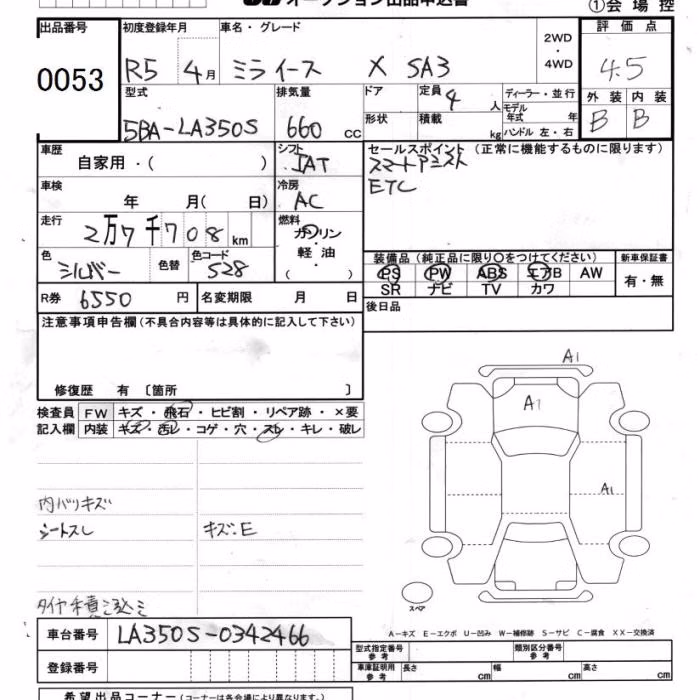 オークション出品申込書
①会場控
出品番号
0053
初度登録年月
R5 4月
車名・グレード
ミライース X SA3
2WD
・
4WD
評価点
4.5
外装 内装
B B
型式
5BA-LA350S
排気量
660 cc
ドア
定員 4 人
ディーラー・並行
モデル
年式 年
形状
積載 kg
ハンドル 左・右
車歴
自家用・( )
シフト
IAT
セールスポイント (正常に機能するものに限ります)
スマートアシスト
ETC
車検
年 月( 日)
冷房
AC
走行
2万7千708 km
燃料
ガソリン
・
軽油
( )
色
シルバー
色替
色コード
S28
装備品 (純正品に限り〇をつけてください)
PS PW ABS エアB AW
SR ナビ TV カワ
新車保証書
有・無
R券 6550 円
名変期限 月 日
後日品
注意事項申告欄 (不具合内容等は具体的に記入して下さい)
修復歴 有 〔箇所 〕
検査員
記入欄
FW キズ・飛石・ヒビ割・リペア跡・×要
内装 キズ・汚レ・コゲ・穴・スレ・キレ・破レ
内バリキズ
シートスレ
キズ.E
タイヤ積込ミ
A1
A1
A1
スペア
A-キズ E-エクボ U-凹み W-補修跡 S-サビ C-腐食 XX-交換済
車台番号 LA350S-0342466
登録番号
型式指定番号
参考
類別区分番号
参考
車庫証明用
参考
長さ cm 幅 cm 高さ cm
希望出品コーナー (コーナーは各会場により異なります。)